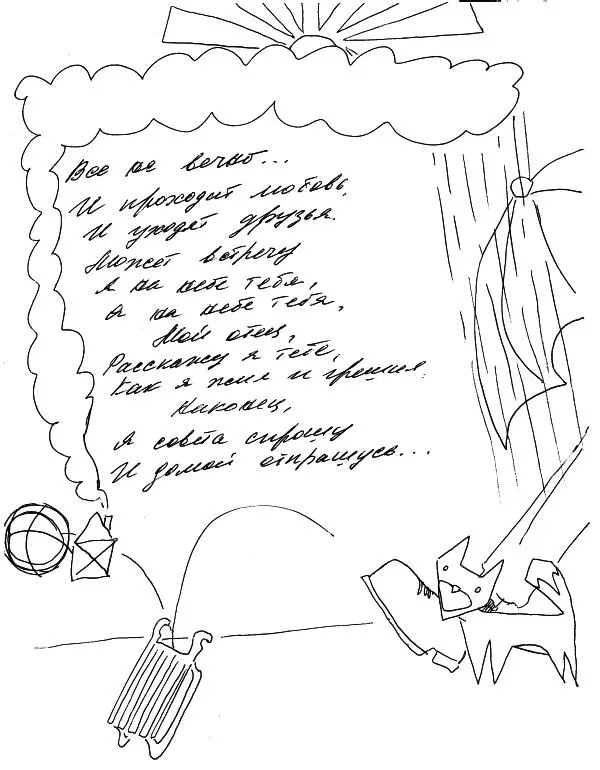 Все не вечно...
И проходит любовь,
И уходят друзья.
Может встречу
я на небе тебя,
Я на небе тебя,
Мой отец,
Расскажу я тебе,
Как я жил и грешил.
Наконец,
Я совета спрошу
И домой отпрашусь...